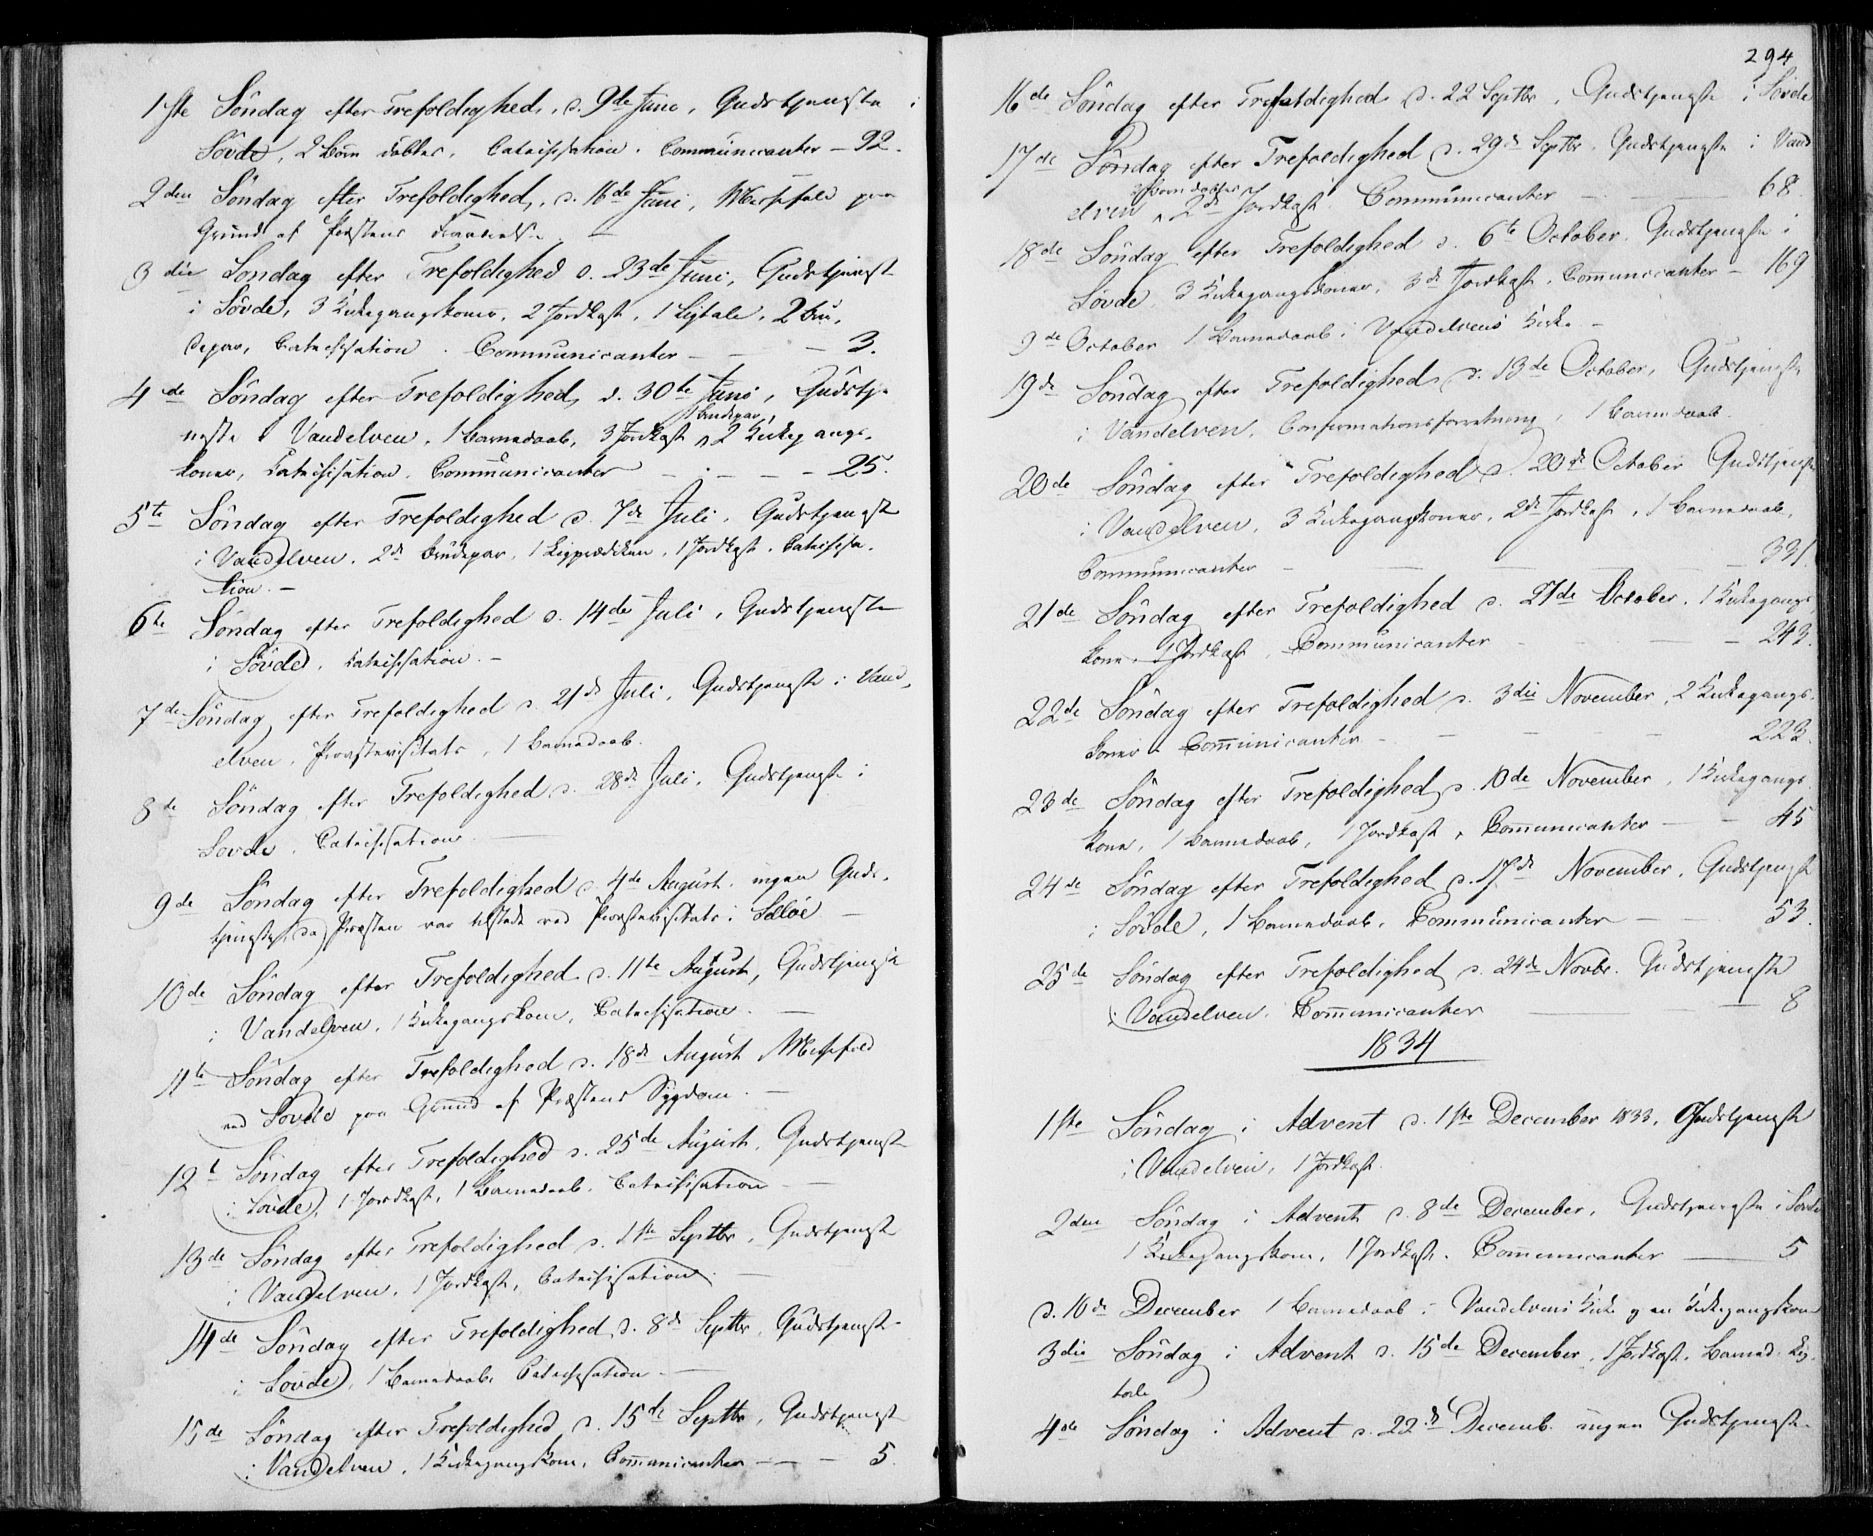 1ste Söndag efter Trefoldighed, d. 9de Juni, Gudstjeneste i
Sövde, 2 Börn döbtes, Catechisation. Communicanter – 92.
2den Söndag efter Trefoldighed, d. 16de Juni, Messefald paa
Grund af Præstens
3die Söndag efter Trefoldighed d. 23de Juni, Gudstjenest
i Sövde, 3 Kirkegangskoner, 2 Jordkast, 1 Ligtale, 2 Bru,
depar, Catechisation. Communicanter – – – 3.
4de Söndag efter Trefoldighed, d. 30te Juni, Gudstje
1 Brudepar,
neste i Vandelven, 1 Barnedaab, 3 Jordkast, 2 Kirkegangs,
koner, Catechisation. Communicanter – – – 25.
5te Söndag efter Trefoldighed d. 7de Juli, Gudstjenest
i Vandelven, 2de Brudepar, 1 Ligprædiken, 1 Jordkast, Catechisa,
tion. –
6te Söndag efter Trefoldighed d. 14de Juli, Gudstjeneste
i Sövde, Catechisation. –
7de Söndag efter Trefoldighed d. 21de Juli, Gudstjeneste i Vand,
elven, Provstevisitats, 1 Barnedaab.
8de Söndag efter Trefoldighed d. 28de Juli, Gudstjeneste i
Sövde. Catechisation. –
9de Söndag efter Trefoldighed d. 4de August, ingen Guds,
tjeneste, da Præsten var tilstede ved Provstevisitats i Selløe –
10de Söndag efter Trefoldighed d. 11te August, Gudstjeneste
i Vandelven, 1 Kirkegangskone, Catechisation. –
11te Söndag efter Trefoldighed d. 18de August Messefald
ved Sövde paa Grund af Præstens Sygdom. –
12te Söndag efter Trefoldighed d. 25de August, Gudstjeneste
i Sövde, 1 Jordkast, 1 Barnedaab, Catechisation –
13de Söndag efter Trefoldighed d. 1ste Septbr, Gudstjenest
i Vandelven, 1 Jordkast, Catechisation. –
14de Söndag efter Trefoldighed, d. 8de Septbr, Gudstjeneste
i Sövde, 1 Barnedaab, Catechisation. –
15de Söndag efter Trefoldighed, d. 15de Septbr, Gudstjenest
i Vandelven, 1 Kirkegangskone, Communicanter – – – 5.
294
16de Söndag efter Trefoldighed, d. 22 Septbr, Gudstjeneste i Sövde
17de Söndag efter Trefoldighed d. 29de Septbr. Gudstjeneste i Vand
Börn döbtes
elven, 2de Jordkast. Communicanter – – 68.
18de Söndag efter Trefoldighed d. 6te October. Gudstjeneste i
Sövde, 3 Kirkegangskoner, 3de Jordkast, Communicanter – 169
9de October 1 Barnedaab i Vandelvens Kirke –
19de Söndag efter Trefoldighed, d. 13de October, Gudstjeneste
i Vandelven, Confirmationsforretning, 1 Barnedaab.
20de Söndag efter Trefoldighed d. 20de October Gudstjeneste
i Vandelven, 3 Kirkegangskoner, 2de Jordkast, 1 Barnedaab,
Communicanter – – – 331
21de Söndag efter Trefoldighed d. 27de October, 1 Kirkegangs
kone, 1 Jordkast, Communicanter – – – 243.
22de Söndag efter Trefoldighed d. 3die November, 2 Kirkegangs,
koner. Communicanter – – – 223.
23de Söndag efter Trefoldighed, d. 10de November, 1 Kirkegangs
kone, 1 Barnedaab, 1 Jordkast, Communicanter – – 45
24de Söndag efter Trefoldighed, d. 17de November, Gudstjenest
i Sövde, 1 Barnedaab, Communicanter – – 53.
25de Söndag efter Trefoldighed, d. 24de Novbr. Gudstjeneste
i Vandelven. Communicanter – – 8
1834
1ste Söndag i Advent d. 1ste December 1833, Gudstjeneste
i Vandelven, 1 Jordkast.
2den Söndag i Advent d. 8de December, Gudstjeneste i Sövde
1 Kirkegangskone, 1 Jordkast. Communicanter – 5
d. 10de December 1 Barnedaab i Vandelvens Kirke og en Kirkegangskone
3die Söndag i Advent d. 15de December, 1 Jordkast, Barned. Lig,
tale
4de Söndag i Advent d. 22de Decemb. ingen Gudstjeneste.